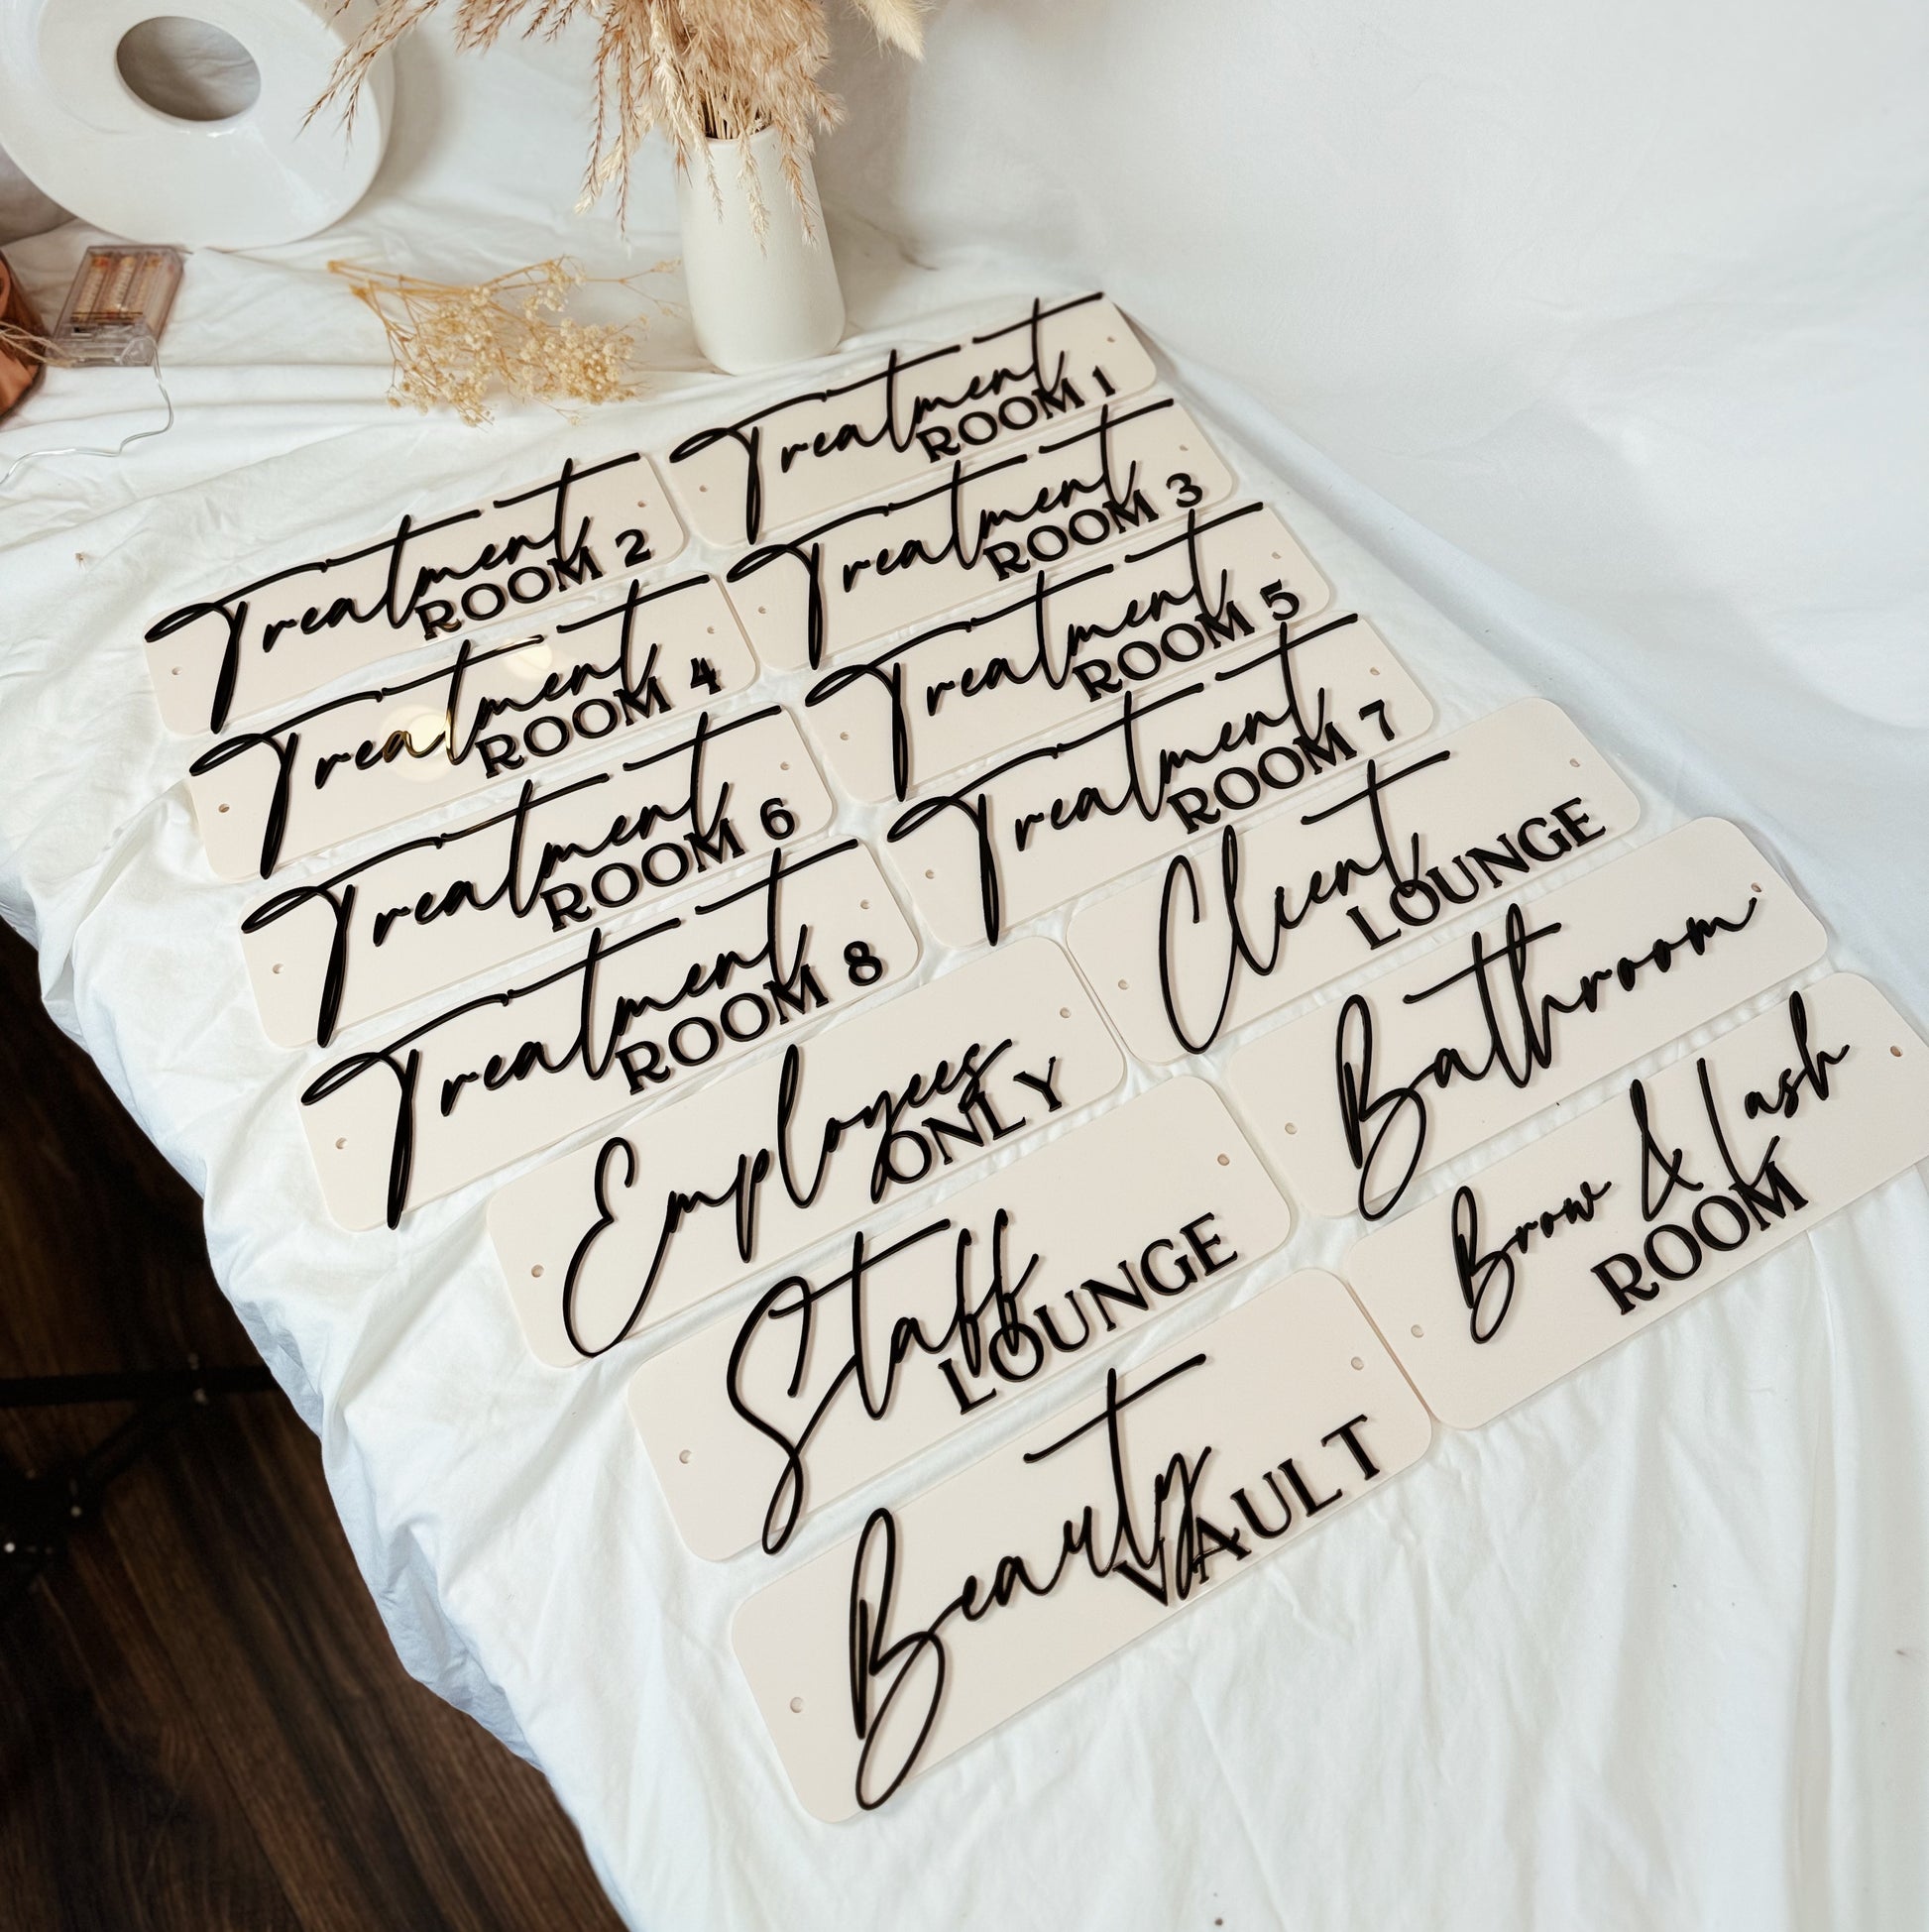 Treatment
ROOM 1
Treatment
ROOM 2
Treatment
ROOM 3
Treatment
ROOM 4
Treatment
ROOM 5
Treatment
ROOM 6
Treatment
ROOM 7
Treatment
ROOM 8
Client
LOUNGE
Employees
ONLY
Bathroom
Staff
LOUNGE
Brow & Lash
ROOM
Beauty
VAULT